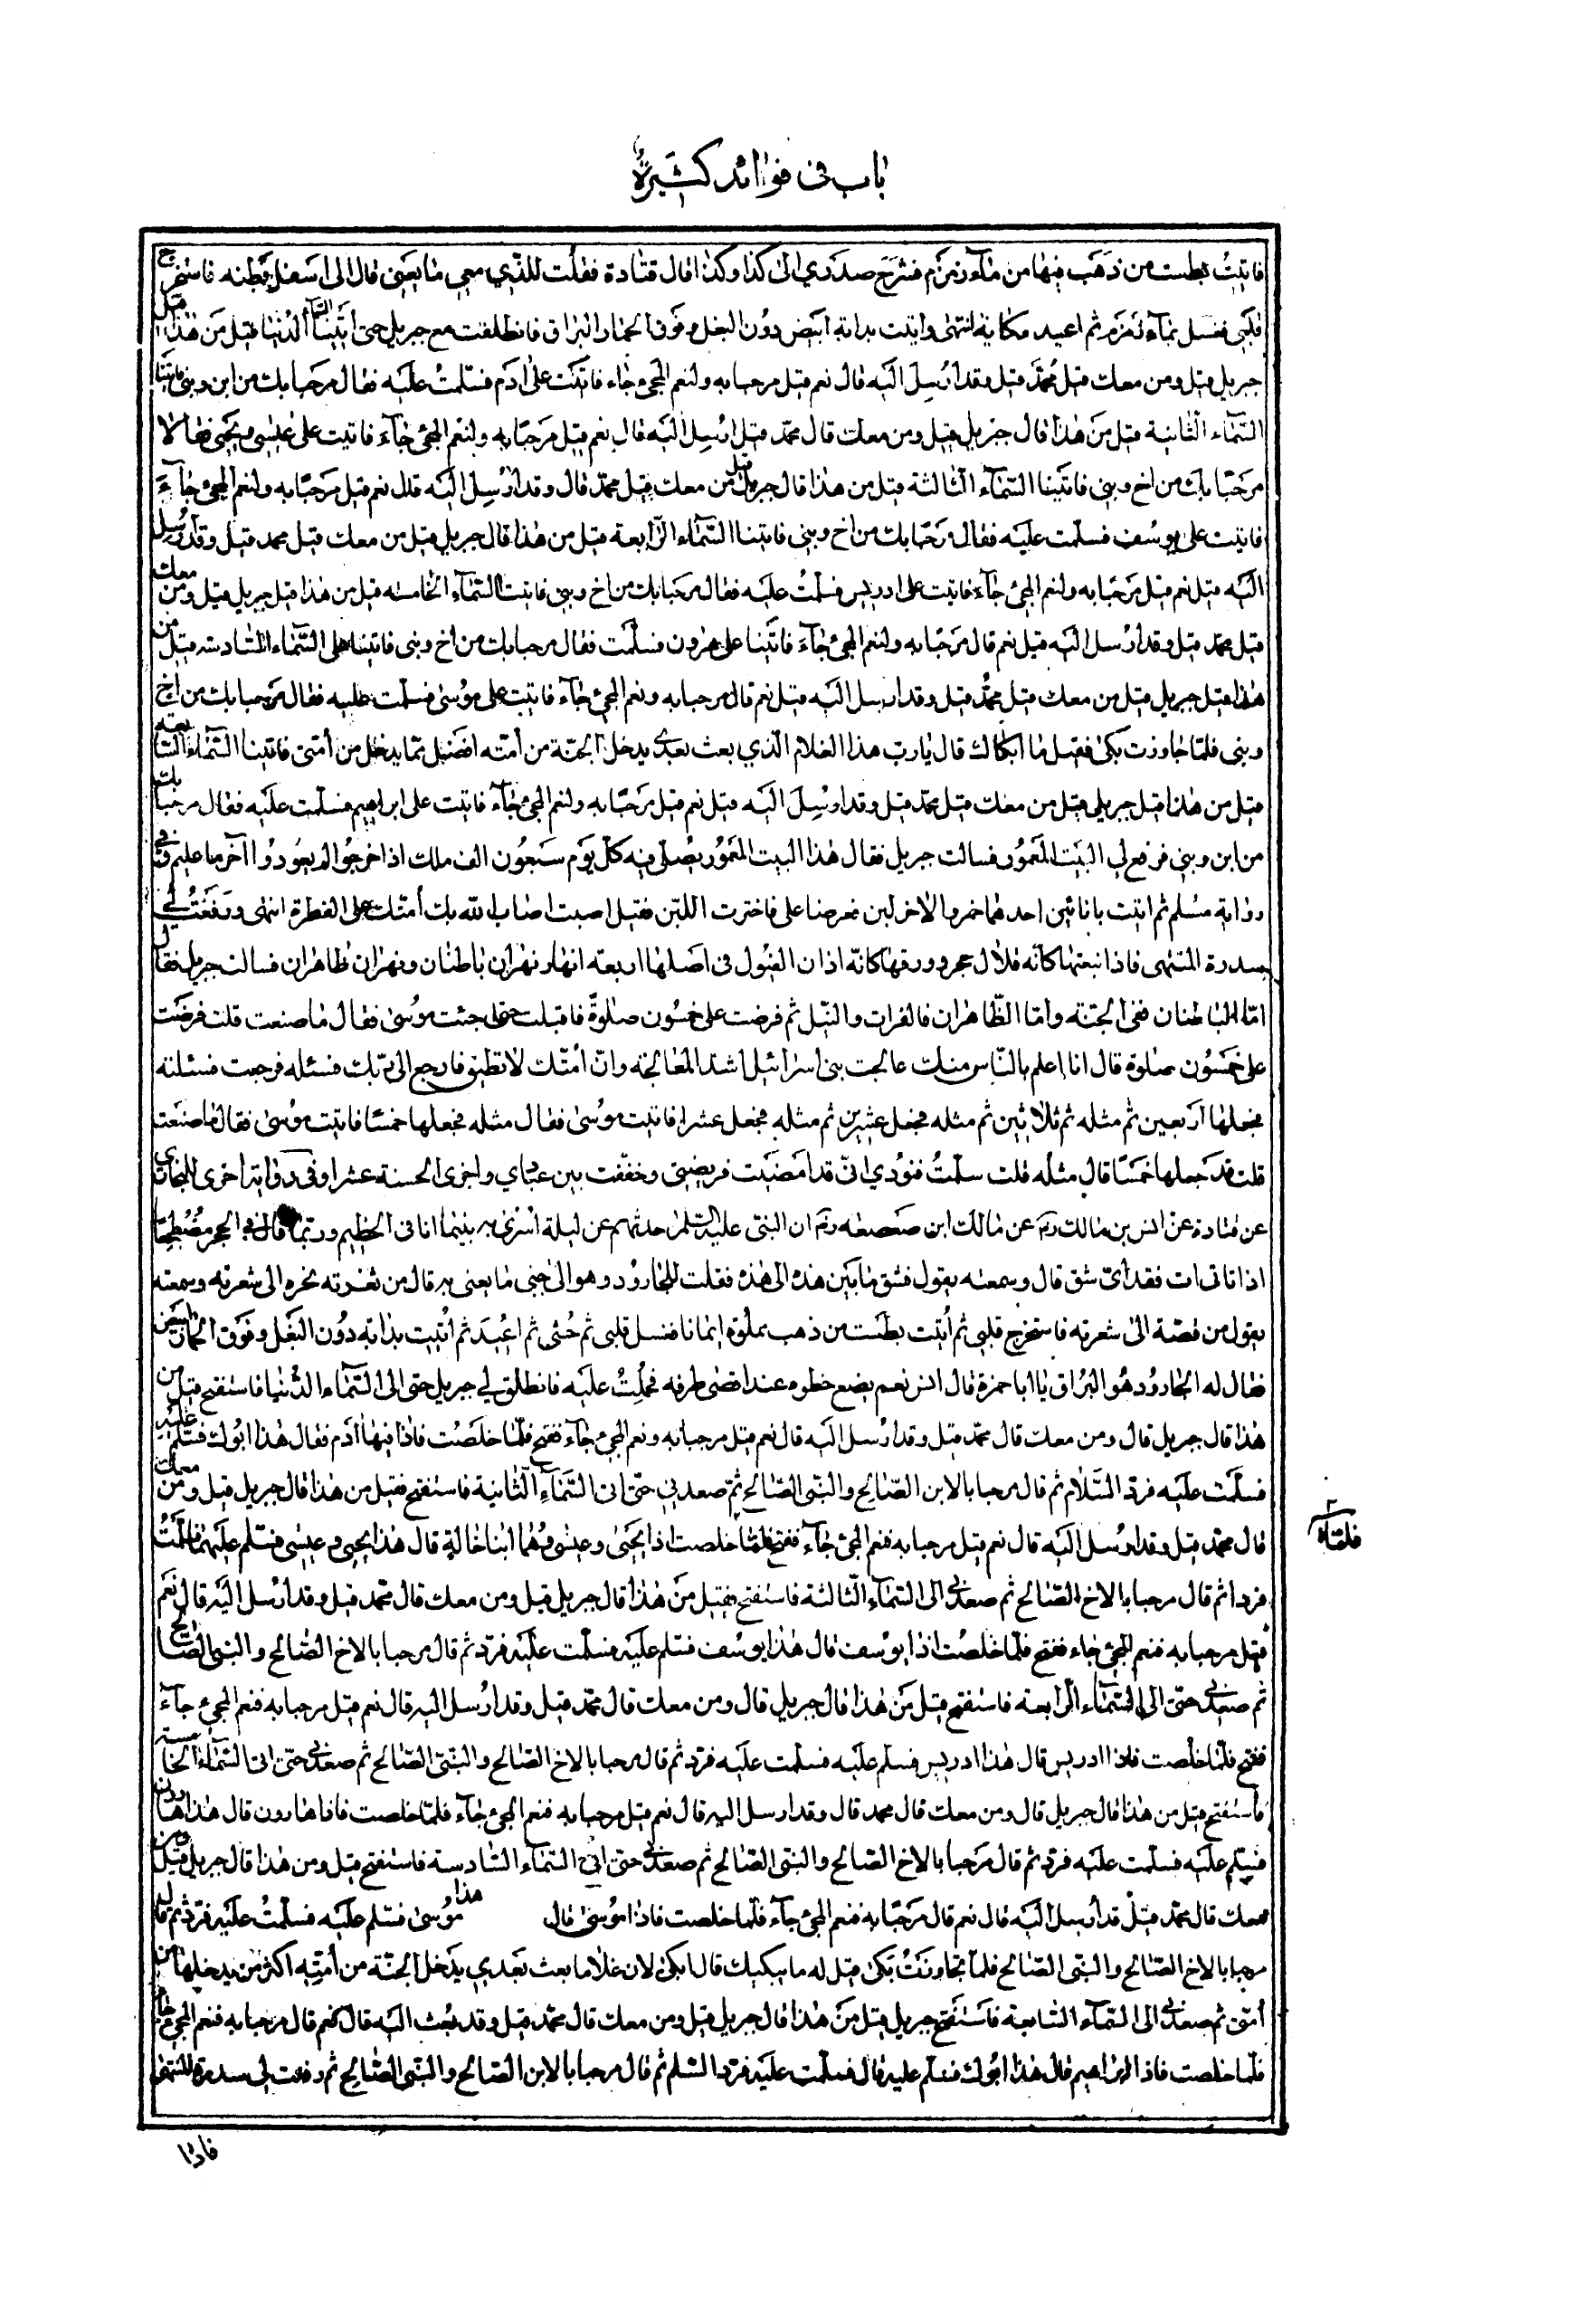 باب في فوائد كثيرة
فاتيت بطست من ذهب فيها من ماء زمزم فشرح صدري الى كذا وكذا قال قتادة فقلت للذي معي ما يعني قال الى اسفل بطنه فاستخرج
قلبي فغسل بماء زمزم ثم اعيد مكانه انتهى واتيت بدابة ابيض دون البغل وفوق الحمار البراق فانطلقت مع جبريل حتى اتينا السماء الدنيا قيل من هذا قيل
جبريل قيل ومن معك قيل محمد قيل وقد ارسل اليه قال نعم قيل مرحبا به ولنعم المجئ جاء فاتيت على ادم فسلمت عليه فقال مرحبا بك من ابن ونبي فاتينا
السماء الثانية قيل من هذا قال جبريل قيل ومن معك قال محمد قيل ارسل اليه قال نعم قيل مرحبا به ولنعم المجئ جاء فاتيت على عيسى ويحيى فقالا
مرحبا بك من اخ ونبي فاتينا السماء الثالثة قيل من هذا قال جبريل قيل من معك قيل محمد قال وقد ارسل اليه قال نعم قيل مرحبا به ولنعم المجئ جاء
فاتيت على يوسف فسلمت عليه فقال مرحبا بك من اخ ونبي فاتينا السماء الرابعة قيل من هذا قال جبريل قيل من معك قيل محمد قيل وقد ارسل
اليه قيل نعم قيل مرحبا به ولنعم المجئ جاء فاتيت على ادريس فسلمت عليه فقال مرحبا بك من اخ ونبي فاتيت السماء الخامسه قيل من هذا قيل جبريل قيل ومن معك
قيل محمد قيل وقد ارسل اليه قيل نعم قال مرحبا به ولنعم المجئ جاء فاتينا على هرون فسلمت فقال مرحبا بك من اخ ونبي فاتينا على السماء السادسة قيل من
هذا قيل جبريل قيل من معك قيل محمد قيل وقد ارسل اليه قيل نعم قال مرحبا به ونعم المجئ جاء فاتيت على موسى فسلمت عليه فقال مرحبا بك من اخ
ونبي فلما جاوزت بكى فقيل ما ابكاك قال يا رب هذا الغلام الذي بعث بعدي يدخل الجنة من أمته افضل مما يدخل من أمتي فاتينا السماء السابعة
قيل من هذا قيل جبريل قيل من معك قيل محمد قيل وقد ارسل اليه قيل نعم قيل مرحبا به ولنعم المجئ جاء فاتيت على ابراهيم فسلمت عليه فقال مرحبا بك
من ابن ونبي فرفع لي البيت المعمور فسالت جبريل فقال هذا البيت المعمور يصلي فيه كل يوم سبعون الف ملك اذا خرجوا لم يعودوا آخر ما عليهم وفي
رواية مسلم ثم اتيت بانائين احدهما خمر والاخر لبن فعرضا علي فاخترت اللبن فقيل اصبت اصاب الله بك أمتك على الفطرة انتهى ورفعت لي
سدرة المنتهى فاذا نبقها كأنه قلال هجر وورقها كانه اذان الفيول في اصلها اربعة انهار نهران باطنان ونهران ظاهران فسالت جبريل فقال
اما الباطنان ففي الجنة واما الظاهران فالفرات والنيل ثم فرضت علي خمسون صلوة فاقبلت حتى جئت موسى فقال ما صنعت قلت فرضت
علي خمسون صلوة قال انا اعلم بالناس منك عالجت بني اسرائيل اشد المعالجة وان أمتك لا تطيق فارجع الى ربك فسئله فرجعت فسئلته
فجعلها اربعين ثم مثله ثم ثلاثين ثم مثله فجعل عشرين ثم مثله فجعل عشرا فاتيت موسى فقال مثله فجعلها خمسا فاتيت موسى فقال ما صنعت
قلت قد جعلها خمسا قال مثله قلت سلمت فنودي اني قد امضيت فريضتي وخففت بين عبادي واجزى الحسنة عشرا وفي رواية اخرى للبخاري
عن قتادة عن انس بن مالك رضي عن مالك ابن صعصعه رضي ان النبي عليه السلم حدثهم عن ليلة اسري به بينما انا في الحطيم وربما قال في الحجر مضطجعا
اذ اتاني ات فقد أي شق قال وسمعته يقول فشق ما بين هذه الى هذه فقلت للجارود وهو الى جنبي ما يعني به قال من ثغرته نحره الى شعرته وسمعته
يقول من قصة الى شعرته فاستخرج قلبي ثم أتيت بطست من ذهب مملوة ايمانا فغسل قلبي ثم حشي ثم اعيد ثم أتيت بدابه دون البغل وفوق الحمار ابيض
فقال له الجارود هو البراق يا ابا حمزة قال انس نعم يضع خطوه عند اقصى طرفه فحملت عليه فانطلق لي جبريل حتى الى السماء الدنيا فاستفتح قيل من
هذا قال جبريل قال ومن معك قال محمد قيل وقد ارسل اليه قال نعم قيل مرحبا به ونعم المجئ جاء ففتح فلما خلصت فاذا فيها آدم فقال هذا ابوك فسلم عليه
فسلمت عليه فرد السلام ثم قال مرحبا بالابن الصالح والنبي الصالح ثم صعد بي حتى اتى السماء الثانية فاستفتح فقيل من هذا قال جبريل قيل ومن معك
قال محمد قيل وقد ارسل اليه قال نعم قيل مرحبا به فنعم المجئ جاء ففتح فلما خلصت اذا يحيى وعيسى وهما ابنا خالة قال هذا يحيى وعيسى فسلم عليهما فسلمت
فردا ثم قال مرحبا بالاخ الصالح ثم صعد بي الى السماء الثالثة فاستفتح فقيل من هذا قال جبريل قيل ومن معك قال محمد قيل وقد ارسل اليه قال نعم
قيل مرحبا به فنعم المجئ جاء ففتح فلما خلصت اذا يوسف قال هذا يوسف فسلم عليه فسلمت عليه فرد ثم قال مرحبا بالاخ الصالح والنبي الصالح
ثم صعد بي حتى الى السماء الرابعة فاستفتح قيل من هذا قال جبريل قال ومن معك قال محمد قيل وقد ارسل اليه قال نعم قيل مرحبا به فنعم المجئ جاء
ففتح فلما خلصت فاذا ادريس قال هذا ادريس فسلم عليه فسلمت عليه فرد ثم قال مرحبا بالاخ الصالح والنبي الصالح ثم صعد بي حتى اتى السماء الخامسة
فاستفتح قيل من هذا قال جبريل قال ومن معك قال محمد قال وقد ارسل اليه قال نعم قيل مرحبا به فنعم المجئ جاء فلما خلصت فاذا هارون قال هذا هارون
فسلم عليه فسلمت عليه فرد ثم قال مرحبا بالاخ الصالح والنبي الصالح ثم صعد بي حتى اتى السماء السادسة فاستفتح قيل ومن هذا قال جبريل قيل ومن
معك قال محمد قيل قد أرسل اليه قال نعم قال مرحبا به فنعم المجئ جاء فلما خلصت فاذا موسى قال هذا موسى فسلم عليه فسلمت عليه فرد ثم قال
مرحبا بالاخ الصالح والنبي الصالح فلما تجاوزت بكى قيل له ما يبكيك قال ابكي لان غلاما بعث بعدي يدخل الجنة من أمته اكثر من يدخلها من
أمتي ثم صعد بي الى السماء السابعة فاستفتح جبريل قيل من هذا قال جبريل قيل ومن معك قال محمد قيل وقد بعث اليه قال نعم قال مرحبا به فنعم المجئ جاء
فلما خلصت فاذا ابراهيم قال هذا ابوك فسلم عليه قال فسلمت عليه فرد السلم ثم قال مرحبا بالابن الصالح والنبي الصالح ثم رفعت لي سدرة المنتهى
فاذا